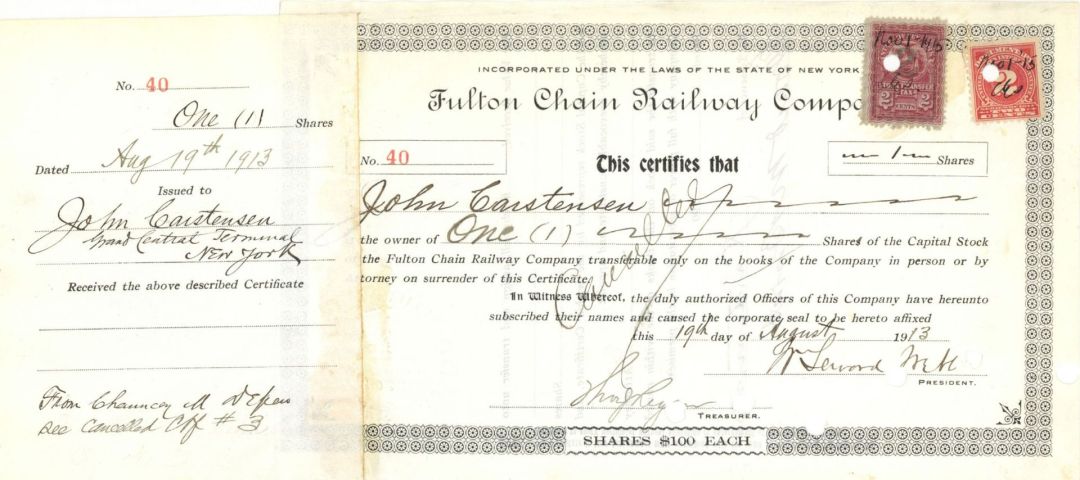 No. 40
One (1) Shares
Dated Aug 19th 1913
Issued to
John Carstensen
Grand Central Terminal
New York
Received the above described Certificate
From Chauncey M Depew
See Cancelled Ctf # 3
INCORPORATED UNDER THE LAWS OF THE STATE OF NEW YORK
Fulton Chain Railway Compa
No. 40
This certifies that
1 Shares
John Carstensen
the owner of One (1) Shares of the Capital Stock
the Fulton Chain Railway Company transferable only on the books of the Company in person or by
torney on surrender of this Certificate.
Cancelled
In Witness Whereof, the duly authorized Officers of this Company have hereunto
subscribed their names and caused the corporate seal to be hereto affixed
this 19th day of August 1913
W Seward Webb
PRESIDENT.
TREASURER.
SHARES $100 EACH
2 CENTS 2